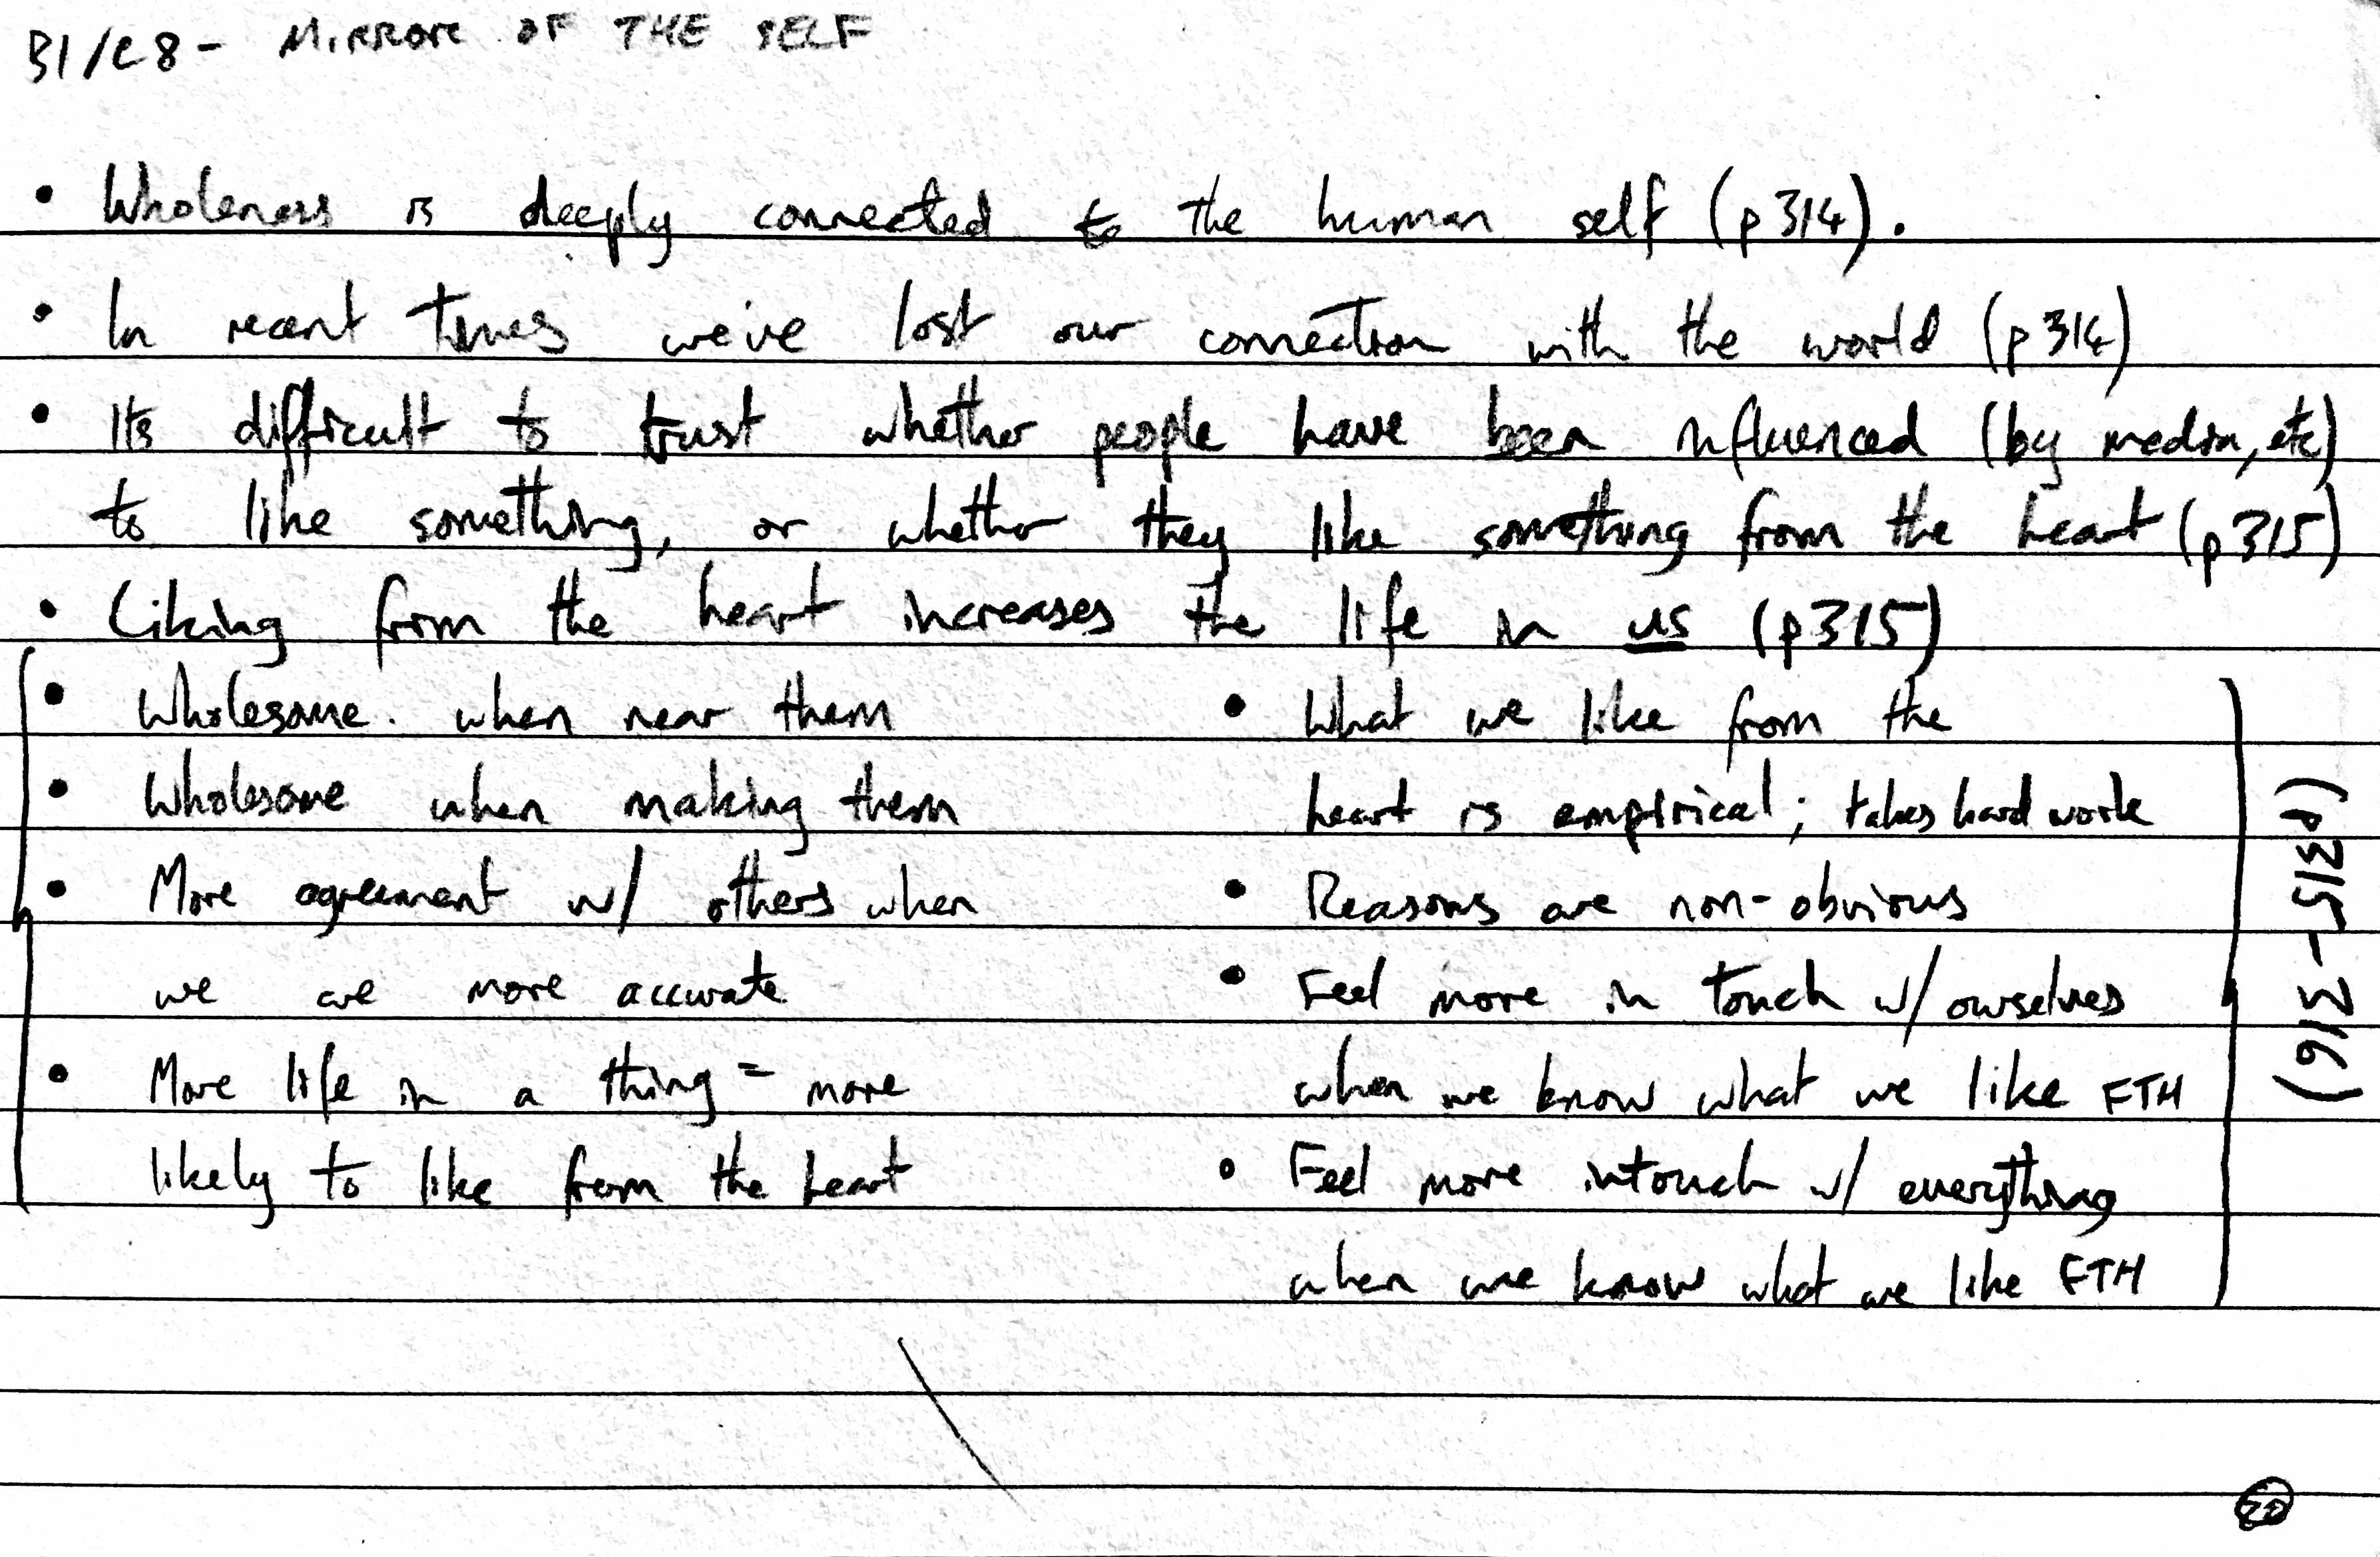 B1/C8 - MIRROR OF THE SELF
• Wholeness is deeply connected to the human self (p314).
• In recent times we've lost our connection with the world (p314)
• Its difficult to trust whether people have been influenced (by media, etc)
to like something, or whether they like something from the heart (p315)
• Liking from the heart increases the life in us (p315)
• Wholesome when near them
• Wholesome when making them
• More agreement w/ others when
we are more accurate
• More life in a thing = more
likely to like from the heart
• What we like from the
heart is empirical; takes hard work
• Reasons are non-obvious
• Feel more in touch w/ ourselves
when we know what we like FTH
• Feel more intouch w/ everything
when we know what we like FTH
(p315-316)
20